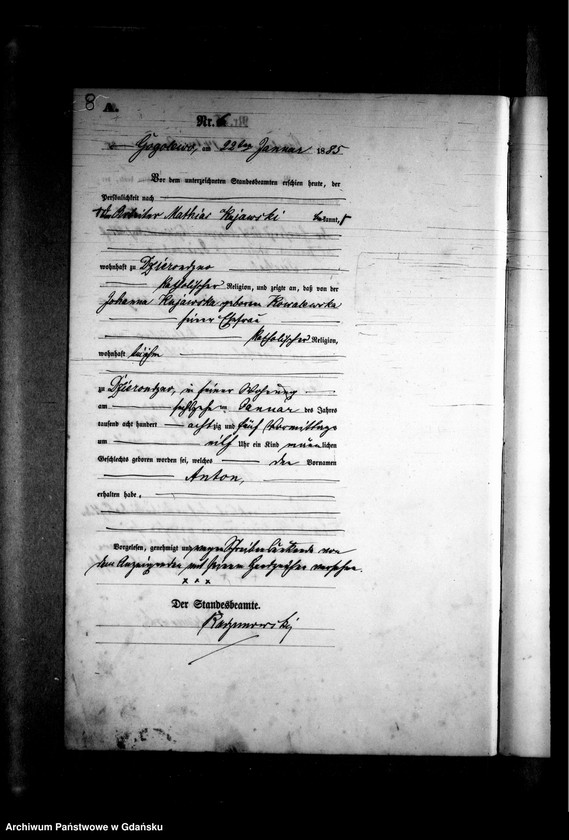 8
A.
Nr. 6
Gogolewo, am 22ten Januar 1885
Vor dem unterzeichneten Standesbeamten erschien heute, der
Persönlichkeit nach
der Arbeiter Mathias Kujawski bekannt,
wohnhaft zu Dzierondzno
katholischer Religion, und zeigte an, daß von der
Johanna Kujawska geboren Kowalewska
seiner Ehefrau
katholischer Religion,
wohnhaft bei ihm
zu Dzierondzno, in seiner Wohnung
am Januar des Jahres
tausend acht hundert achtzig und fünf Vormittags
um elf Uhr ein Kind männlichen
Geschlechts geboren worden sei, welches den Vornamen
Anton,
erhalten habe.
Vorgelesen, genehmigt und wegen Schreibensunkunde von
dem Anzeigenden mit seinem Handzeichen versehen.
x x x
Der Standesbeamte.
Archiwum Państwowe w Gdańsku